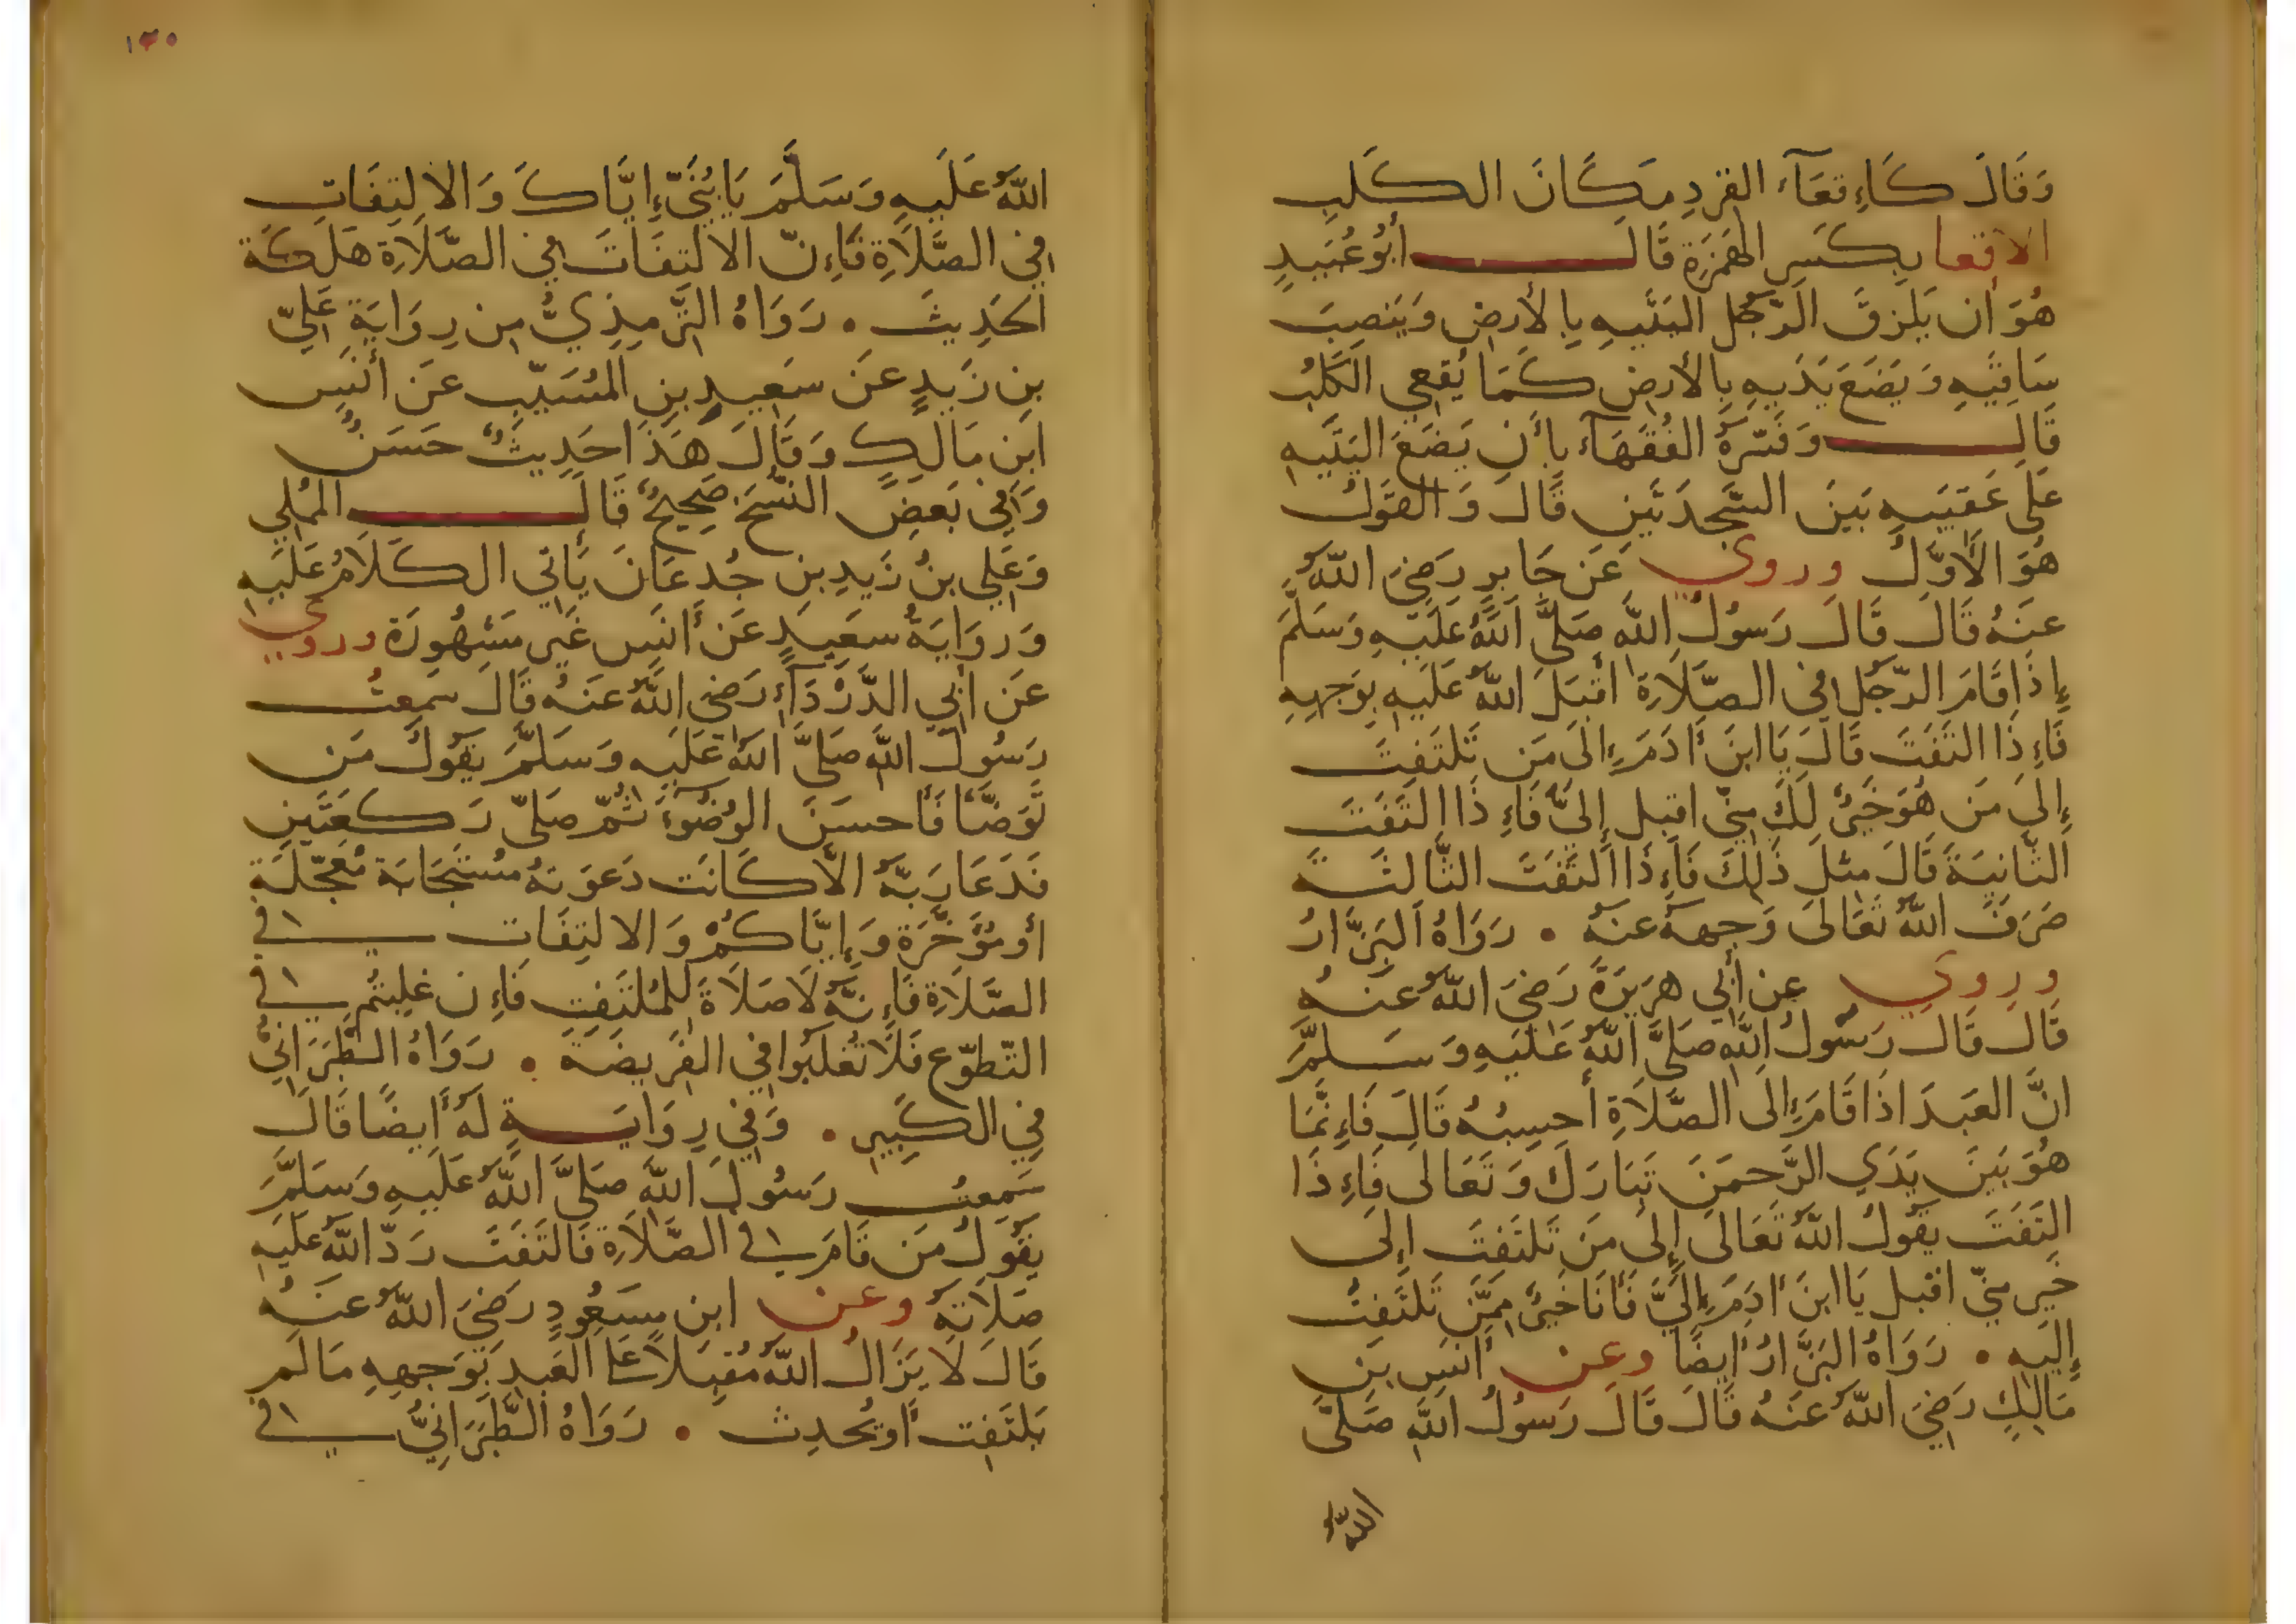 وَقَالَ كَاءِقعَآءِ القردِ مَكَانَ الكَلبِ
الاقعا بِكَسرِ الهَمزَةِ قَالَ أبُو عُبَيدٍ
هُوَ أن يَلزقَ الرَّجُل اليَتَيهِ بِالأرضِ وَيَنصِبَ
سَاقَيهِ وَيَضَعَ يَدَيهِ بِالأرضِ كَمَا يُقعِي الكَلبُ
قَالَ وَفَسّرَهُ الفُقَهَآء بِأن يَضَعَ اليَتَيهِ
عَلَى عَقِبَيهِ بَينَ السَّجدَتَينِ قَالَ وَالقَولُ
هُوَ الأوَّلُ وروي عَن جَابرٍ رَضِيَ اللّهُ
عَنهُ قَالَ قَالَ رَسُولُ اللّهِ صَلَّى اللّهُ عَلَيهِ وَسَلَّمَ
إذَا قَامَ الرّجُل في الصَّلَاةِ أقبَلَ اللّهُ عَلَيهِ بِوَجهِهِ
فَإِذَا التَفَتَ قَالَ يَا ابنَ أَدَمَ إلَى مَن تَلتَفِتَ
إلَى مَن هُوَ خَيرٌ لَكَ مِنّي اقبل إلَيَّ فَإِذَا التَفَتَ
الثّانِيَةَ قَالَ مِثلَ ذَلِكَ فَإِذَا التَفَتَ الثَّالثَة
صَرَفَ اللّهُ تَعَالَى وَجهَهُ عَنهُ . رَوَاهُ البَزَّارُ
وروي عن أبي هرَيرَةَ رَضِيَ اللّهُ عَنهُ
قَالَ قَالَ رَسُولُ اللّهِ صَلَّى اللّهُ عَلَيهِ وَسَلَّمَ
انَّ العَبدَ اذَا قَامَ إلَى الصَّلَاةِ أحسِبُهُ قَالَ فَإِنَّمَا
هُوَ بَينَ يَدَي الرَّحمَنِ تَبَارَكَ وَتَعَالَى فَإِذَا
التَفَتَ يَقُولُ اللّهُ تَعَالَى إلَى مَن تَلتَفتَ إلَى
خَيرٍ مِنّي اقبل يَا ابنَ أدَمَ إلَيَّ فَأنَا خَيرٌ مِمَّن تَلتَفِتُ
إلَيهِ . رَوَاهُ البَزَّارُ أيضًا وعن أنَسِ بنِ
مَالِكٍ رَضِيَ اللّهُ عَنهُ قَالَ قَالَ رَسُولُ اللّهِ صَلَّى
اللّهُ
١٢٥
اللّهُ عَلَيهِ وَسَلَّمَ يَا بُنَيَّ إيَّاكَ وَالالتِفَاتِ
في الصَّلَاةِ فَإِنّ الالتِفَاتَ في الصَّلَاةِ هَلَكَة
الحَدِيثَ . رَوَاهُ التّرمِذِيُّ مِن رِوَايَةِ عَلِيّ
بنِ زَيدٍ عَن سَعِيدِ بنِ المُسَيّبِ عَن أنَسِ
ابنِ مَالِكٍ وَقَالَ هَذَا حَدِيثٌ حَسَنٌ
وَفي بَعضِ النّسَخِ صَحِيحٌ قَالَ المُملِي
وَعَلِي بنُ زَيدِ بنِ جُدعَانَ يَأتي الكَلَامُ عَلَيهِ
وَرِوَايَةُ سعَيدٍ عَن أنَسٍ غَير مَشهُورَة وروي
عَن أبِي الدَّردَآءِ رَضِيَ اللّهُ عَنهُ قَالَ سَمِعتُ
رَسُولَ اللّهِ صَلَّى اللّهُ عَلَيهِ وَسَلَّمَ يَقُولُ مَن
تَوَضَّأ فَأحسَنَ الوُضُوءَ ثُمّ صَلّى رَكعَتَينِ
فَدَعَا رَبَّهُ الاّ كَانَت دَعوَتهُ مُستَجَابَة مُعَجّلَةً
أو مُؤَخَّرَة وَإيَّاكُم وَالالتِفَات في
الصَّلَاةِ فَإِنَّهُ لَا صَلَاةَ لِلمُلتَفِتِ فَإِن غلِبتُم في
التّطوّع فَلَا تُغلَبُوا في الفَرِيضَة . رَوَاهُ الطَّبَرَانيُّ
في الكَبِيرِ . وَفي رِوَايَةٍ لَهُ أيضًا قَالَ
سَمِعتُ رَسُولَ اللّهِ صَلَّى اللّهُ عَلَيهِ وَسَلَّمَ
يَقُولُ مَن قَامَ في الصَّلَاةِ فَالتَفَتَ رَدَّ اللّهُ عَلَيهِ
صَلَاتَهُ وعن ابن مسعُودٍ رَضِيَ اللّهُ عَنهُ
قَالَ لَا يَزَالُ اللّهُ مُقبِلًا عَلَى العَبدِ بِوَجهِهِ مَا لَم
يَلتَفِت أو يُحدِث . رَوَاهُ الطَّبَرَانِيُّ في